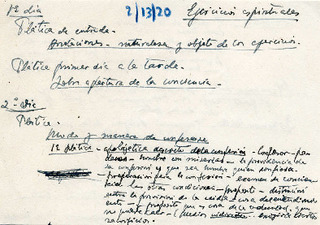 1er día 2/13/20 Ejercicios espirituales
Plática de entrada.
Anotaciones - naturaleza y objeto de los ejercicios.
Plática primer día a la tarde.
Sobre apertura de la conciencia.
2.º día
Plática.
Modo y manera de confesarse
1ª plática - apologética de la confesión - confesor - pa
hombre con miserias - la providencia de
la confesión y que sea hombre quien confiesa.
preparación para la confesión - examen de concien
cia. Las otras condiciones - propósito - distinción
entre la previsión de la caída
ento - y propósito que nace de la voluntad, que
no puede haber
sacrificios.